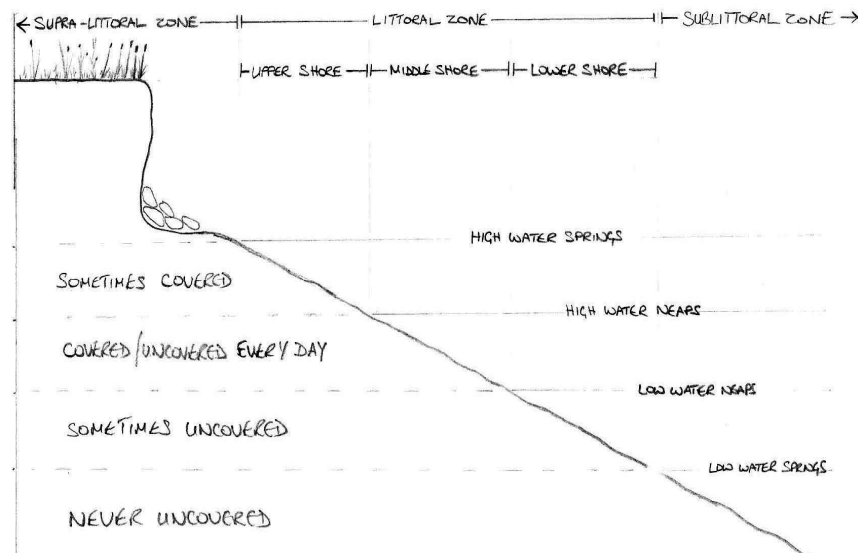 SUPRA-LITTORAL ZONE LITTORAL ZONE SUBLITTORAL ZONE
UPPER SHORE MIDDLE SHORE LOWER SHORE
HIGH WATER SPRINGS
SOMETIMES COVERED
HIGH WATER NEAPS
COVERED/UNCOVERED EVERY DAY
LOW WATER NEAPS
SOMETIMES UNCOVERED
LOW WATER SPRINGS
NEVER UNCOVERED